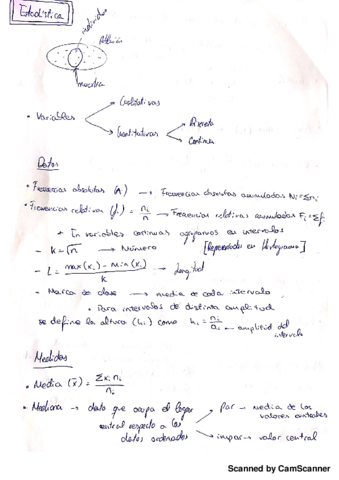 Estadística
individuo
Población
muestra
• Variables
Cualitativas
Cuantitativas
Discreta
Continua
Datos
• Frecuencias absolutas (ni) → Frecuencias absolutas acumuladas Ni=Σni
• Frecuencias relativas (fi) = ni/n → Frecuencias relativas acumuladas Fi=Σfi
* En variables continuas agrupamos en intervalos
- k=√n → Número [Representados en Histograma]
- L = max(xi) - min(xi) / k → Longitud
- Marca de clase → media de cada intervalo
• Para intervalos de distinta amplitud
se define la altura (hi) como hi = ni/ai → amplitud del intervalo
Medidas
• Media (x̄) = Σxi ni / n
• Mediana → dato que ocupa el lugar central respecto a los datos ordenados
Par → media de los valores centrales
impar → valor central
Scanned by CamScanner